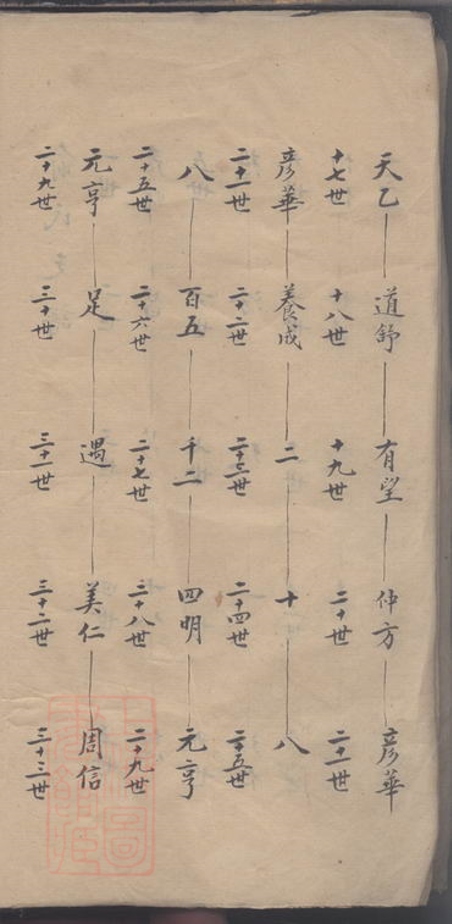 天乙 道舒 有望 仲方 彦華
十七世 十八世 十九世 二十世 二十一世
彦華 養成 二 十 八
二十一世 二十二世 二十三世 二十四世 二十五世
八 百五 千二 四明 元亨
二十五世 二十六世 二十七世 二十八世 二十九世
元亨 足 遇 美仁 周信
二十九世 三十世 三十一世 三十二世 三十三世